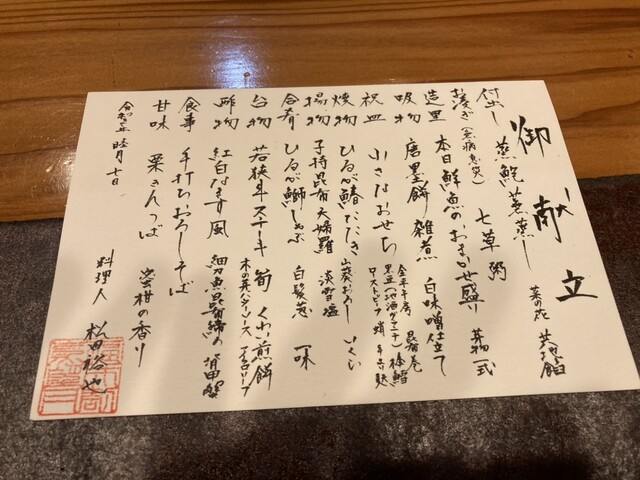 御献立
付出し 蒸鮑蕪蒸し 菜の花
お凌ぎ(無病息災) 七草粥
造里 本日鮮魚のおまかせ盛り 芽物一式
吸物 唐墨餅雑煮 白味噌仕立て
祝皿 小さなおせち
金平牛房 昆布巻
黒豆 棒鱈
ローストビーフ
焼物 ひるが鰆たたき 山葵おろし いくら
揚物 子持昆布天婦羅 淡雪塩
合肴 ひるが鰤しゃぶ 白髪葱 一味
台物 若狭牛ステーキ 筍 くわい煎餅
木の芽バターソース
酢物 紅白なます風 細魚昆布締め 背甲蟹
食事 手打ちおろしそば
甘味 栗きんつば 蜜柑の香り
料理人 松田裕也
令和 年 睦月 七日